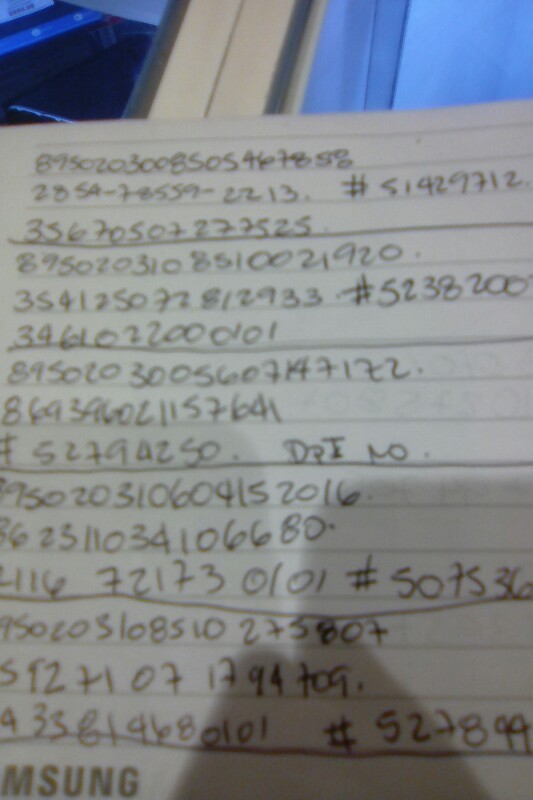 8950203008505467858
2854-78559-2213. # 51429712.
35670507277525.
8950203108510021920.
354125072812933. #5238200
3461022000101
8950203005607147172.
869396021157641
# 52794250. DPI NO.
95020310604152016.
862311034106680.
2116 72173 0101 # 507536
950203108510 275807
59271 07 1794709.
4338194680101 # 527894
MSUNG